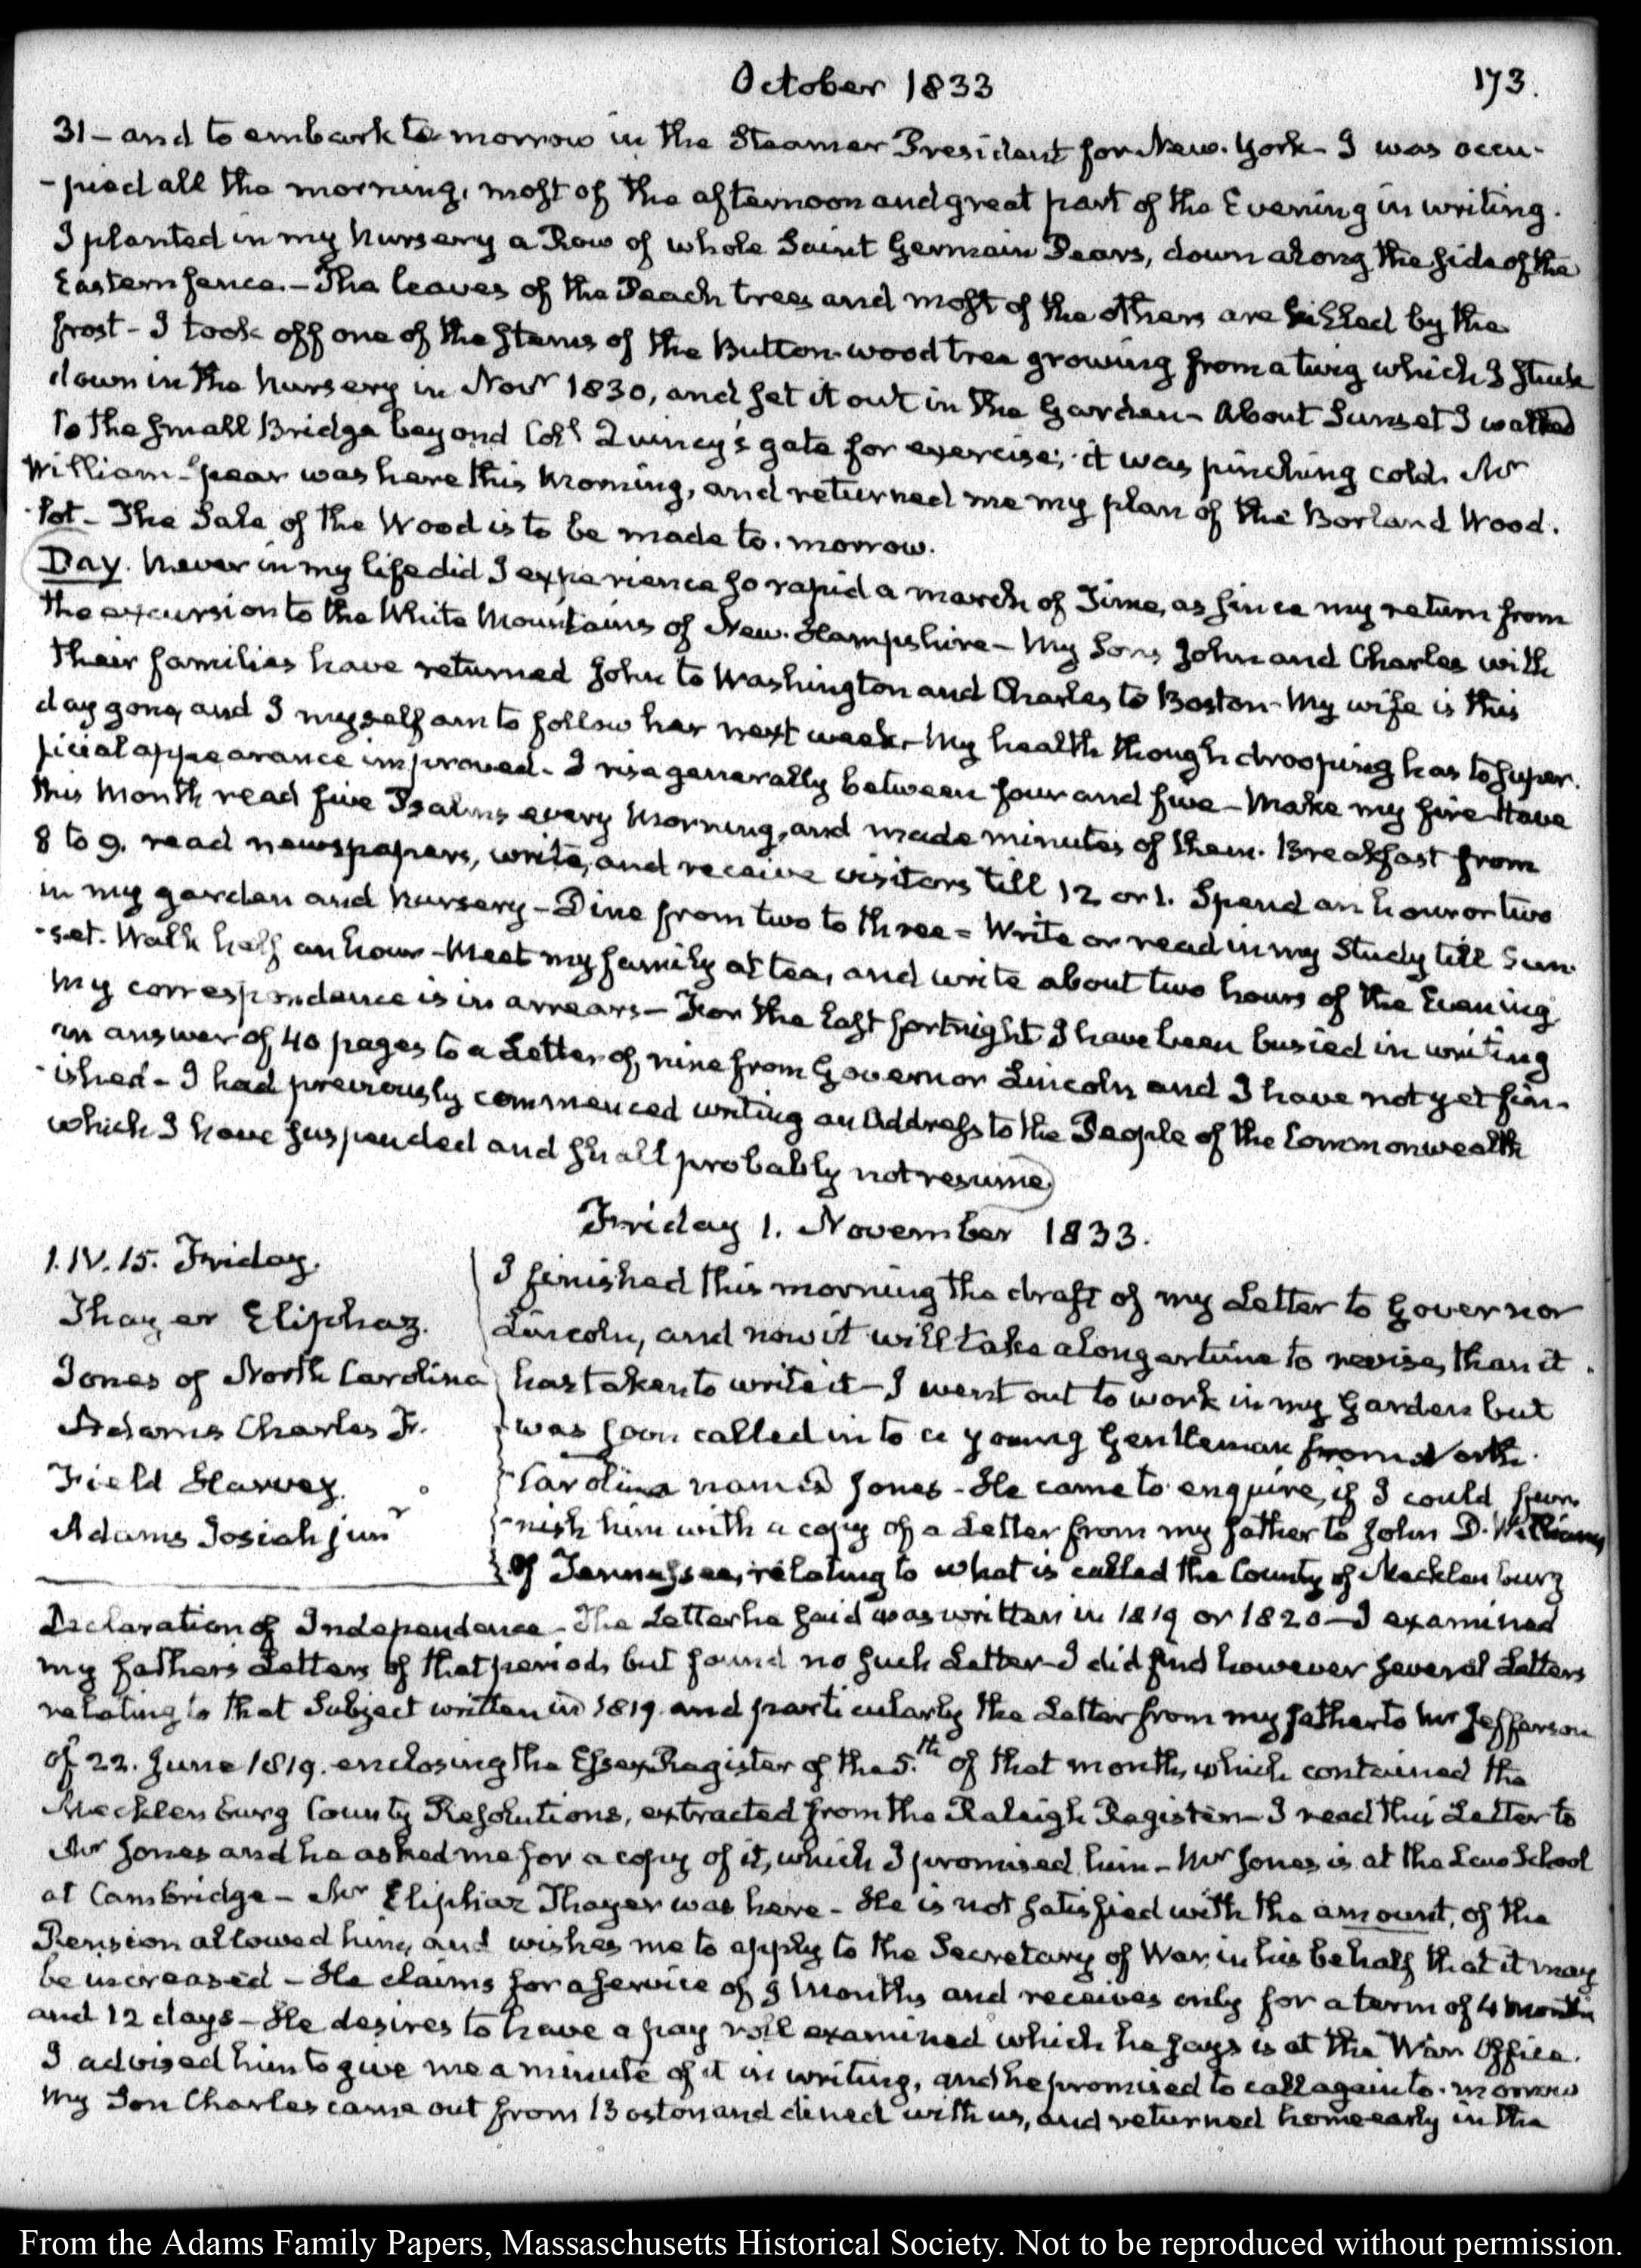 October 1833
173.
31 – and to embark to-morrow in the Steamer President for New-York – I was occu-
-pied all the morning, most of the afternoon and great part of the Evening in writing.
I planted in my Nursery a Row of whole Saint Germain Pears, down along the side of the
Eastern fence. – The leaves of the Peach trees and most of the others are killed by the
frost – I took off one of the stems of the Button-wood tree growing from a twig which I stuck
down in the Nursery in Novr 1830, and set it out in the Garden – About Sunset I walked
to the small Bridge beyond Coll Quincy's gate for exercise; it was pinching cold. Mr
William Spear was here this Morning, and returned me my plan of the Borland Wood.
-lot – The Sale of the Wood is to be made to-morrow.
Day. Never in my life did I experience so rapid a march of Time, as since my return from
the excursion to the White Mountains of New-Hampshire – My Sons John and Charles with
their families have returned John to Washington and Charles to Boston – My wife is this
day gone, and I myself am to follow her next week – My health though drooping has to super.
ficial appearance improved – I rise generally between four and five – Make my fire – Have
this Month read five Psalms every Morning, and made minutes of them. Breakfast from
8 to 9. read newspapers, write, and receive visitors till 12 or 1. Spend an hour or two
in my garden and Nursery – Dine from two to three – Write or read in my Study till Sun-
-set. Walk half an hour – Meet my family at tea, and write about two hours of the Evening
My correspondence is in arrears – For the last fortnight I have been busied in writing
an answer of 40 pages to a Letter of nine from Governor Lincoln and I have not yet fin-
-ished – I had previously commenced writing an Address to the People of the Commonwealth
which I have suspended and shall probably not resume.
Friday 1. November 1833.
1. IV. 15. Friday.
Thayer Eliphaz.
Jones of North Carolina
Adams Charles F.
Field Harvey.
Adams Josiah junr
I finished this morning the draft of my Letter to Governor
Lincoln, and now it will take a longer time to revise, than it
has taken to write it – I went out to work in my Garden but
was soon called in to a young Gentleman from North-
-Carolina named Jones – He came to enquire, if I could fur-
-nish him with a copy of a Letter from my father to John D. Williams
of Tennessee, relating to what is called the County of Mecklenburg
Declaration of Independence – The Letter he said was written in 1819 or 1820 – I examined
my father's Letters of that period, but found no such Letter – I did find however several Letters
relating to that Subject written in 1819. and particularly the Letter from my father to Mr Jefferson
of 22. June 1819. enclosing the Essex Register of the 5.th of that month, which contained the
Mecklenburg County Resolutions, extracted from the Raleigh Register – I read this Letter to
Mr Jones and he asked me for a copy of it, which I promised him – Mr Jones is at the Law School
at Cambridge – Mr Eliphaz Thayer was here – He is not satisfied with the amount, of the
Pension allowed him, and wishes me to apply to the Secretary of War, in his behalf that it may
be increased – He claims for a service of 9 Months and receives only for a term of 4 Months
and 12 days – He desires to have a pay roll examined which he says is at the War Office.
I advised him to give me a minute of it in writing, and he promised to call again to-morrow
My Son Charles came out from Boston and dined with us, and returned home early in the
From the Adams Family Papers, Massachusetts Historical Society. Not to be reproduced without permission.